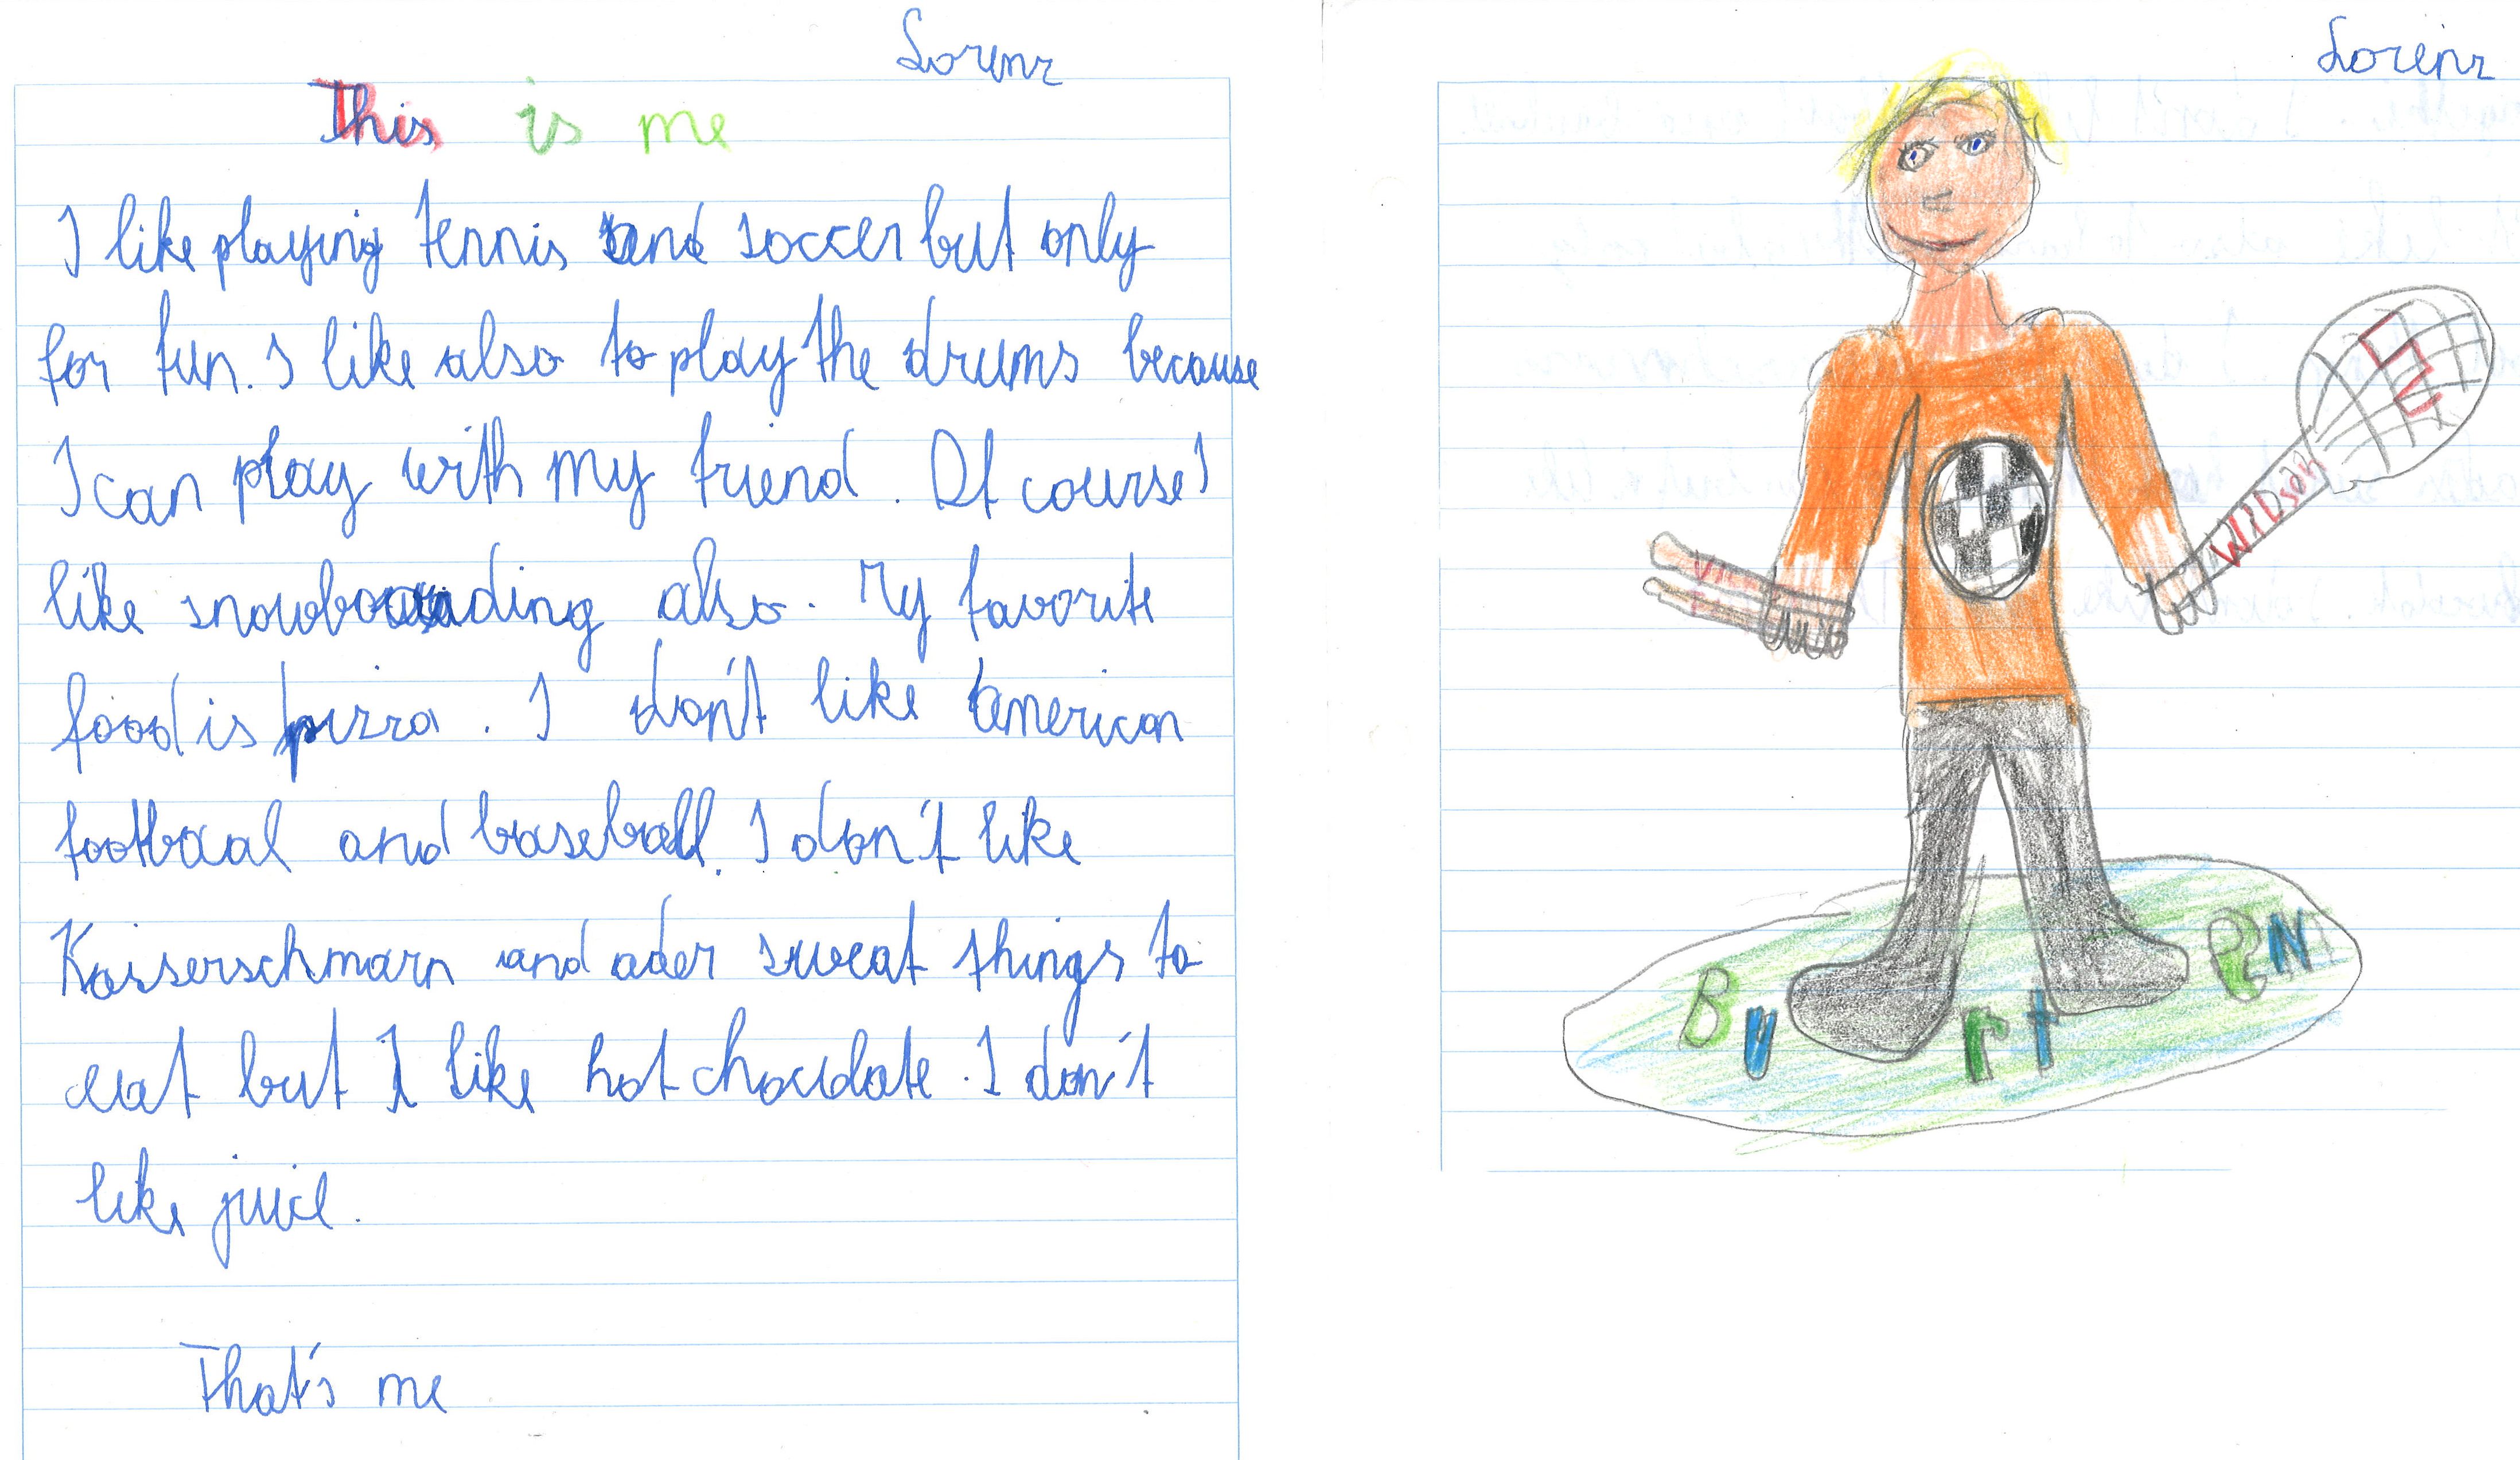 Lorenz
This is me
I like playing tennis and soccer but only
for fun. I like also to play the drums because
I can play with my friend. Of course I
like snowboarding also. My favorite
food is pizza. I don't like American
footbaal and baseball. I don't like
Kaiserschmarn and ader sweat things to
eat but I like hot chocolate. I don't
like juice.
That's me
Lorenz
WILDson
Burten